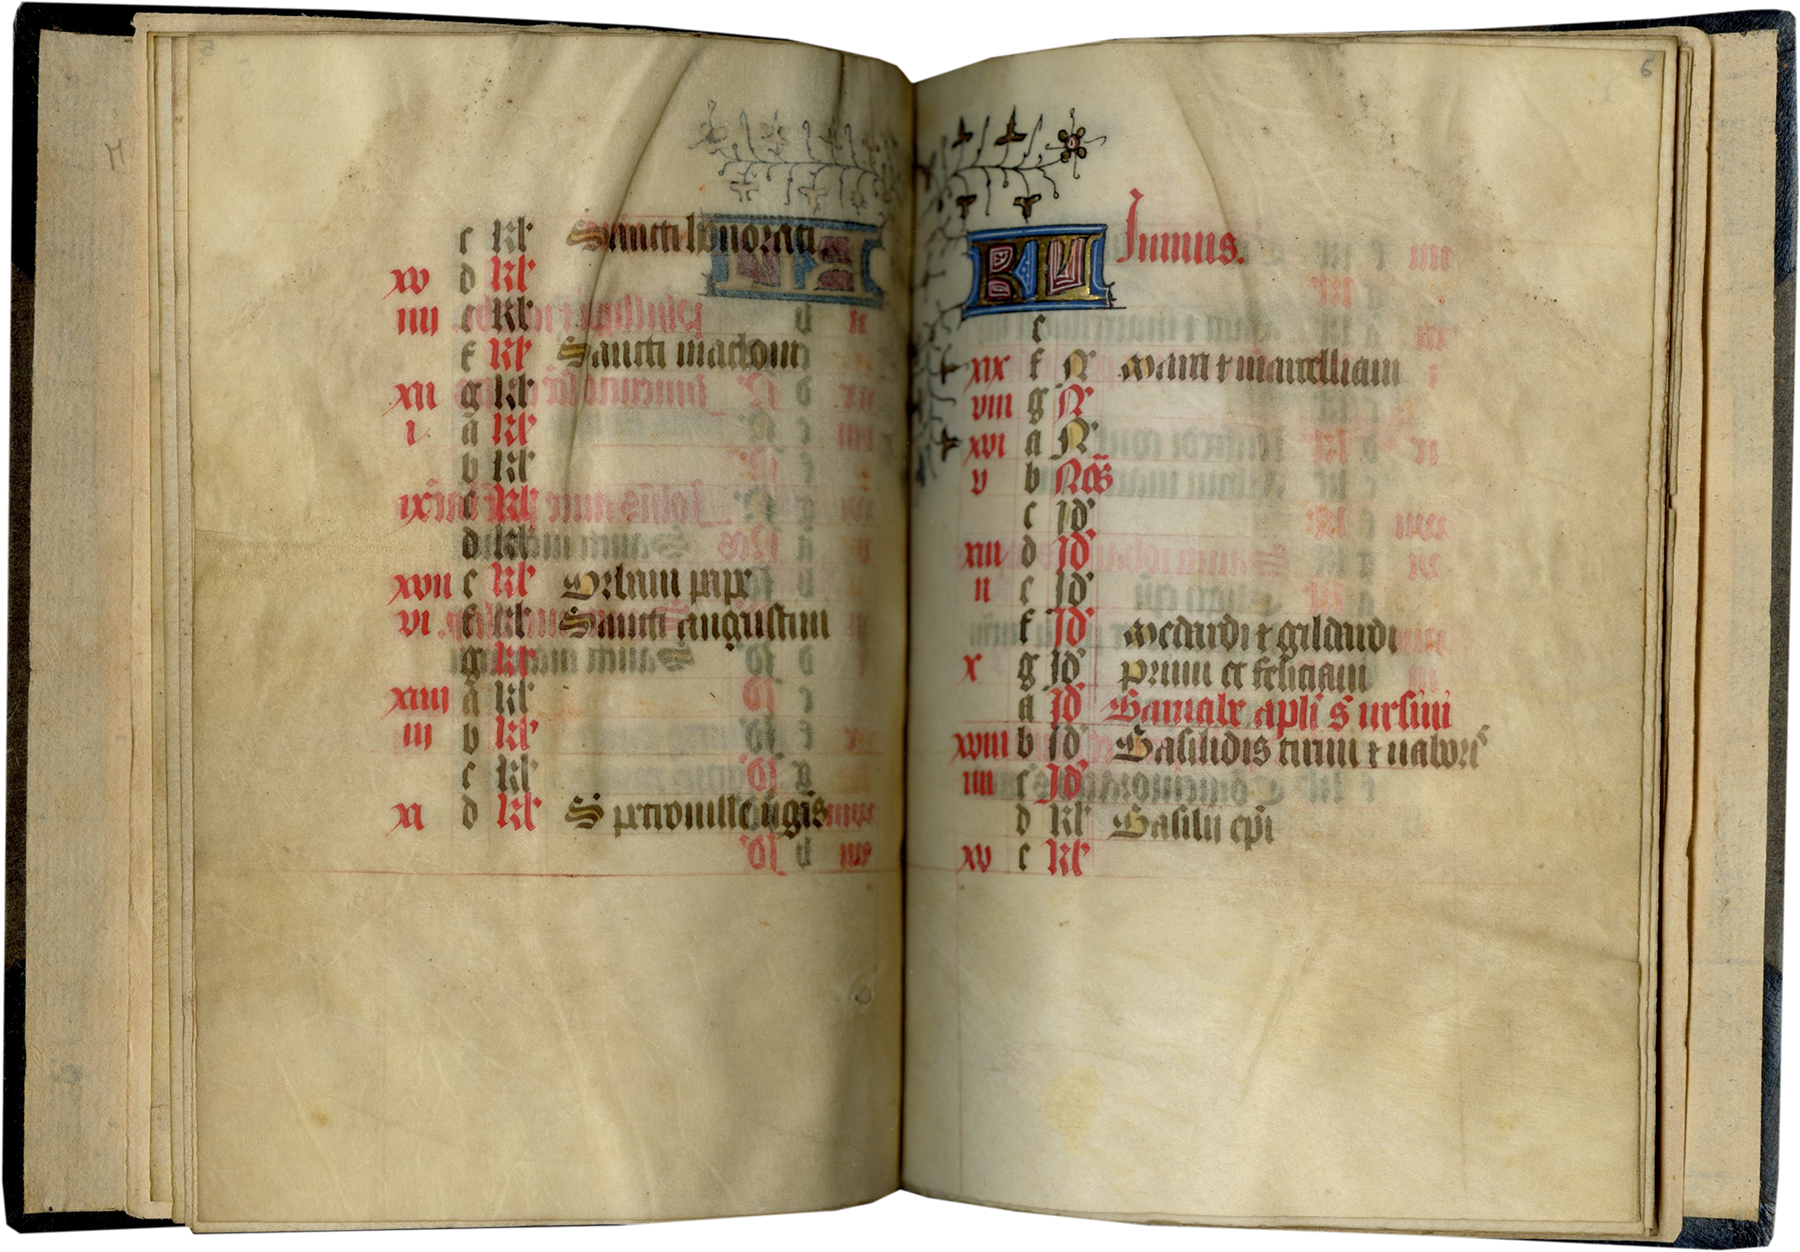 c kl' Sancti honorati
xv d kl'
iiii e kl'
f kl' Sancti macloui
xii g kl'
i a kl'
b kl'
ix c kl'
d kl'
xvii e kl' Orbani pape
vi f kl' Sancti augustini
g kl'
xiiii a kl'
iii b kl'
c kl'
xi d kl' S petronille ûgis
6
KL Iunius.
e
xix f N' Marii t marcelliani
viii g N'
xvi a N'
v b Nōs
c Id'
xiii d Id'
ii e Id'
f Id' Medardi t gildardi
x g Id' Primi et feliciani
a Id' Barnabe apli s ursini
xviii b Id' Basilidis cirini t naboris
iiii c Id'
d kl' Basilii epi
xv e kl'